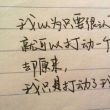 我以为只要很认
就可以打动一个
却原来,
我只是打动了我